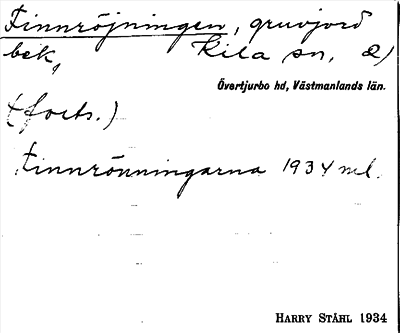 Finnröjningen, gruvjord
bek, Kila sn, 2)
Övertjurbo hd, Västmanlands län.
(forts.)
Finnrönningarna 1934 ml.
HARRY STÅHL 1934